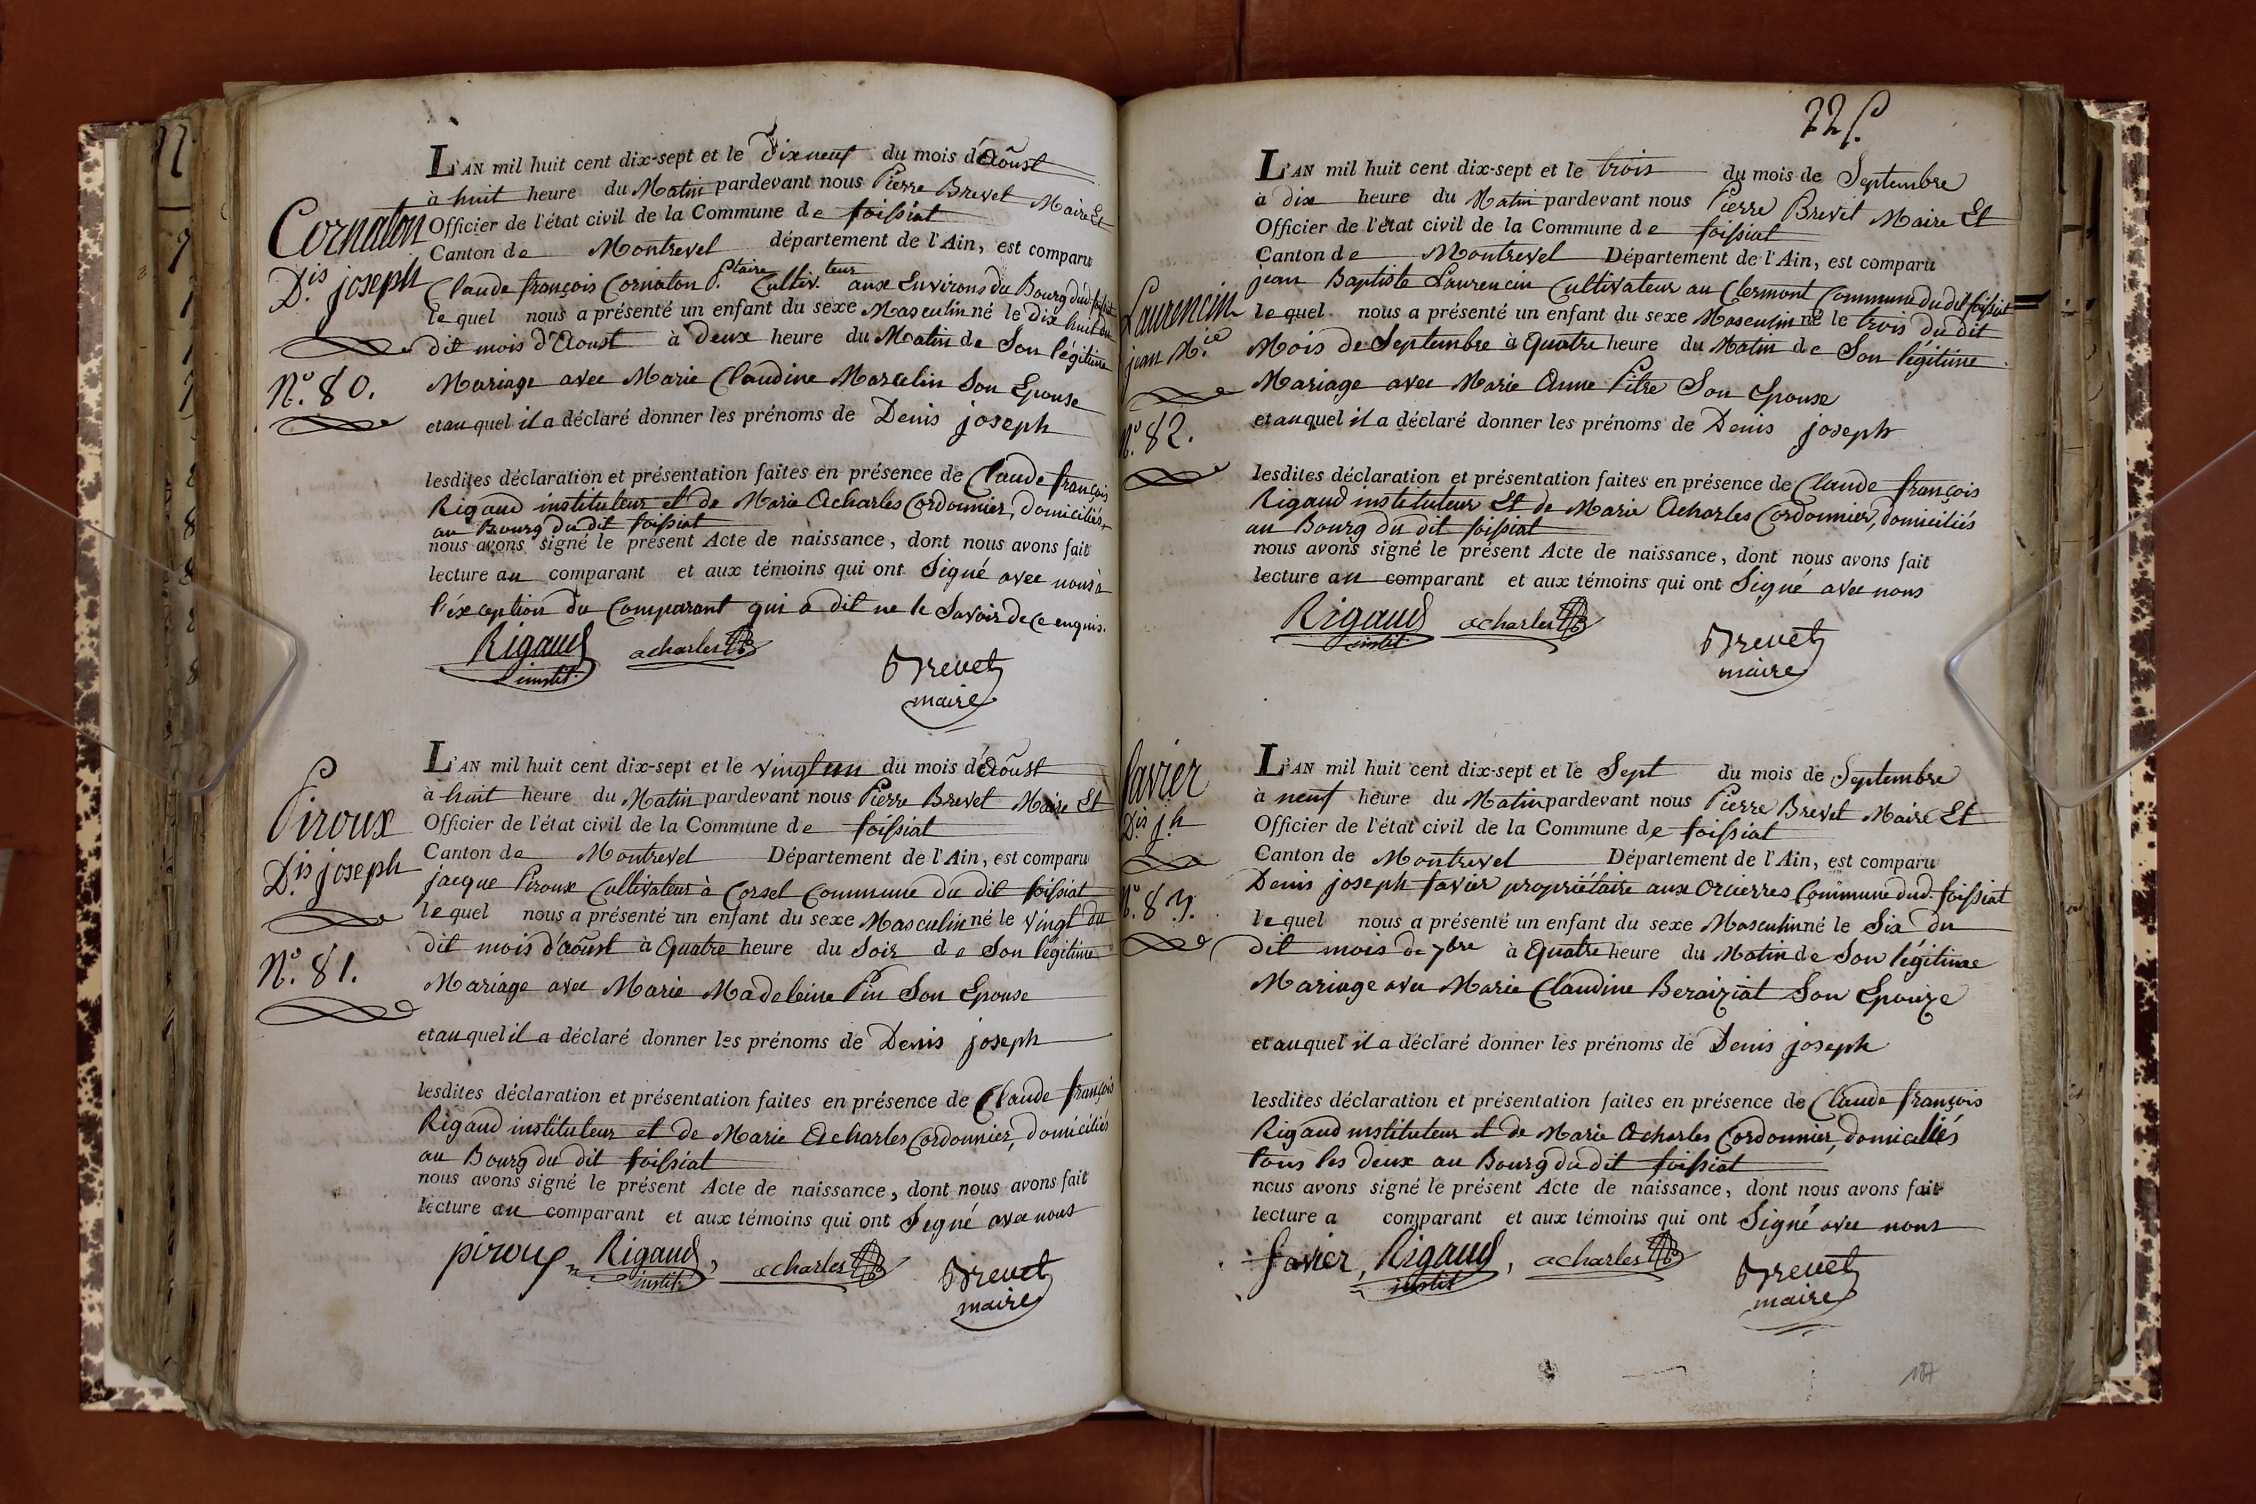 Cornaton
D.is joseph
N.o 80.
L'AN mil huit cent dix-sept et le Dixneuf du mois d'Aoûst
à huit heure du Matin pardevant nous Pierre Brevet Maire Et
Officier de l'état civil de la Commune de foissiat
Canton de Montrevel département de l'Ain, est comparu
Claude françois Cornaton P.taire Cultiv.teur aux Environs du Bourg dud. foissiat
lequel nous a présenté un enfant du sexe Masculin né le Dix huit du
dit mois d'Aoust à Deux heure du Matin de Son légitime
Mariage avec Marie Claudine Marcelin Son Epouse
et auquel il a déclaré donner les prénoms de Denis joseph
lesdites déclaration et présentation faites en présence de Claude françois
Rigaud instituteur et de Marie Acharles Cordonnier, domiciliés
au Bourg du dit foissiat
nous avons signé le présent Acte de naissance, dont nous avons fait
lecture au comparant et aux témoins qui ont Signé avec nous à
l'éxception du Comparant qui a dit ne le Savoir de ce enquis.
Rigaud
instit.
acharles
Brevet
maire
Piroux
D.is joseph
N.o 81.
L'AN mil huit cent dix-sept et le vingt un du mois d'Aoûst
à huit heure du Matin pardevant nous Pierre Brevet Maire Et
Officier de l'état civil de la Commune de foissiat
Canton de Montrevel Département de l'Ain, est comparu
jacque Piroux Cultivateur à Corsel Commune du dit foissiat
lequel nous a présenté un enfant du sexe Masculin né le vingt du
dit mois d'aoûst à Quatre heure du Soir de Son légitime
Mariage avec Marie Madeleine Pin Son Epouse
et auquel il a déclaré donner les prénoms de Denis joseph
lesdites déclaration et présentation faites en présence de Claude françois
Rigaud instituteur et de Marie Acharles Cordonnier, domiciliés
au Bourg du dit foissiat
nous avons signé le présent Acte de naissance, dont nous avons fait
lecture au comparant et aux témoins qui ont Signé avec nous
piroux, Rigaud, acharles
instit.
Brevet
maire
Laurencin
jean M.ie
N.o 82.
L'AN mil huit cent dix-sept et le trois du mois de Septembre
à dix heure du Matin pardevant nous Pierre Brevet Maire Et
Officier de l'état civil de la Commune de foissiat
Canton de Montrevel Département de l'Ain, est comparu
jean Baptiste Laurencin Cultivateur au Clermont Commune du dit foissiat
lequel nous a présenté un enfant du sexe Masculin né le trois du dit
Mois de Septembre à Quatre heure du Matin de Son légitime
Mariage avec Marie Anne Pitre Son Epouse
et auquel il a déclaré donner les prénoms de Denis joseph
lesdites déclaration et présentation faites en présence de Claude françois
Rigaud instituteur Et de Marie Acharles Cordonnier, domiciliés
au Bourg du dit foissiat
nous avons signé le présent Acte de naissance, dont nous avons fait
lecture au comparant et aux témoins qui ont Signé avec nous
Rigaud
instit.
acharles
Brevet
maire
favier
D.is j.h
N.o 83.
L'AN mil huit cent dix-sept et le Sept du mois de Septembre
à neuf heure du Matin pardevant nous Pierre Brevet Maire Et
Officier de l'état civil de la Commune de foissiat
Canton de Montrevel Département de l'Ain, est comparu
Denis joseph favier propriétaire aux Orcierres Commune dud. foissiat
lequel nous a présenté un enfant du sexe Masculin né le Six du
dit mois de 7bre à Quatre heure du Matin de Son légitime
Mariage avec Marie Claudine Beraiziat Son Epouze
et auquel il a déclaré donner les prénoms de Denis joseph
lesdites déclaration et présentation faites en présence de Claude françois
Rigaud instituteur et de Marie Acharles Cordonnier, domiciliés
tous les deux au Bourg du dit foissiat
nous avons signé le présent Acte de naissance, dont nous avons fait
lecture a comparant et aux témoins qui ont Signé avec nous
favier, Rigaud, acharles
instit
Brevet
maire
187